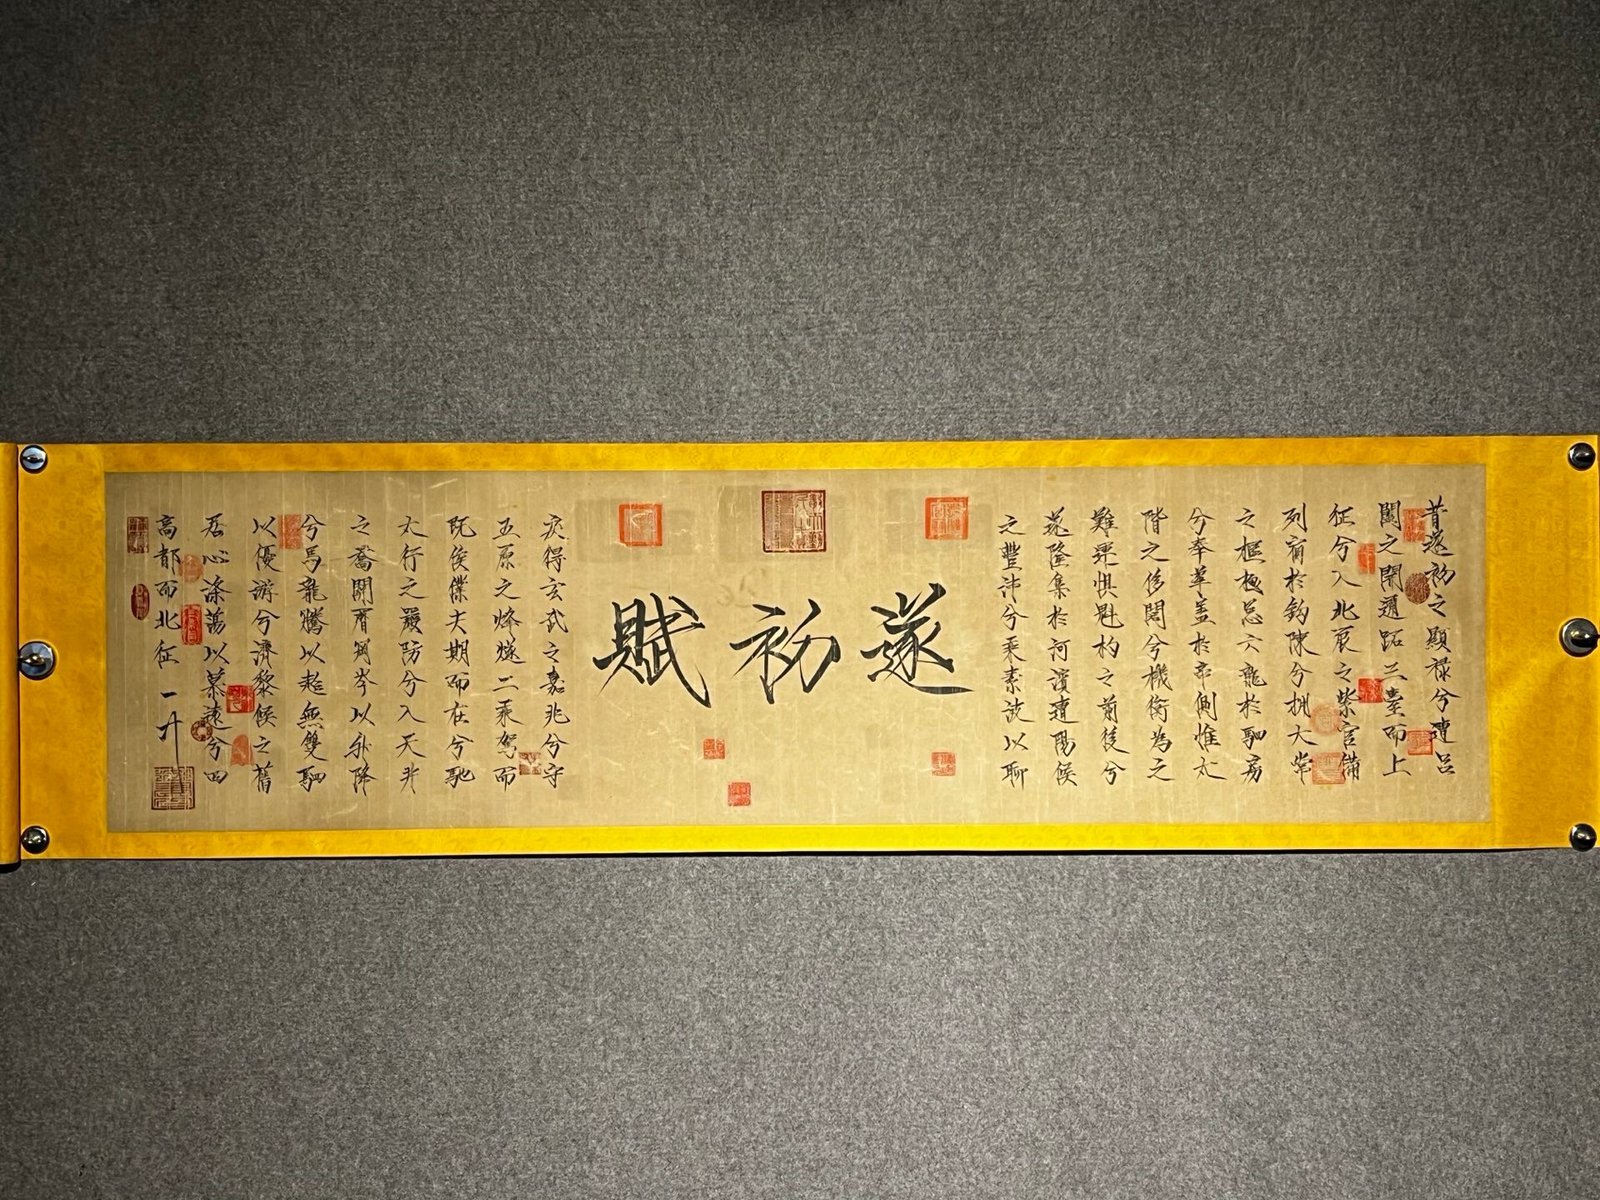 昔遂初之顯祿兮遭呂
闔之開通跖三臺而上
征兮入北辰之紫宮備
列宿於鉤陳兮擁大常
之樞極總六龍於駟房
兮奉華蓋於帝側惟太
階之侈闊兮機衡為之
難運懼魁杓之前後兮
遂隆集於河濱遭陽侯
之豐沛兮乘素波以聊
遂初賦
戾得玄武之嘉兆兮守
五原之烽燧二乘駕而
既俟僕夫期而在兮馳
太行之嚴防兮入天井
之喬關歷岡岑以升降
兮馬龍騰以超無雙駟
以優游兮濟黎侯之舊
居心滌蕩以慕遠兮回
高都而北征